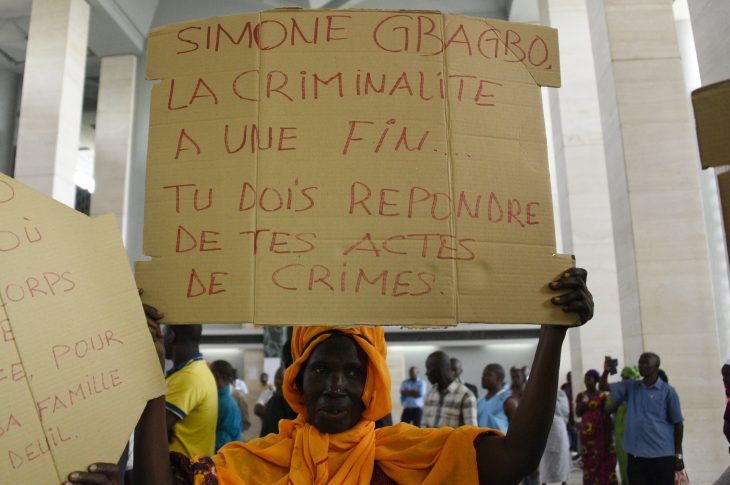 SIMONE GBAGBO,
LA CRIMINALITE
A UNE FIN....
TU DOIS REPONDRE
DE TES ACTES
DE CRIMES.
OÙ
CORPS
, POUR
FAMILLE
DEUIL.